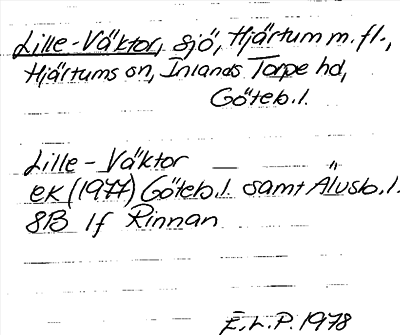 Lille-Väktor, sjö, Hjärtum m.fl.,
Hjärtums sn, Inlands Torpe hd,
Göteb.l.
Lille - Väktor —
ek (1977) Göteb.l. samt Älvsb.l.
8B 1f Rinnan
E.L.P. 1978